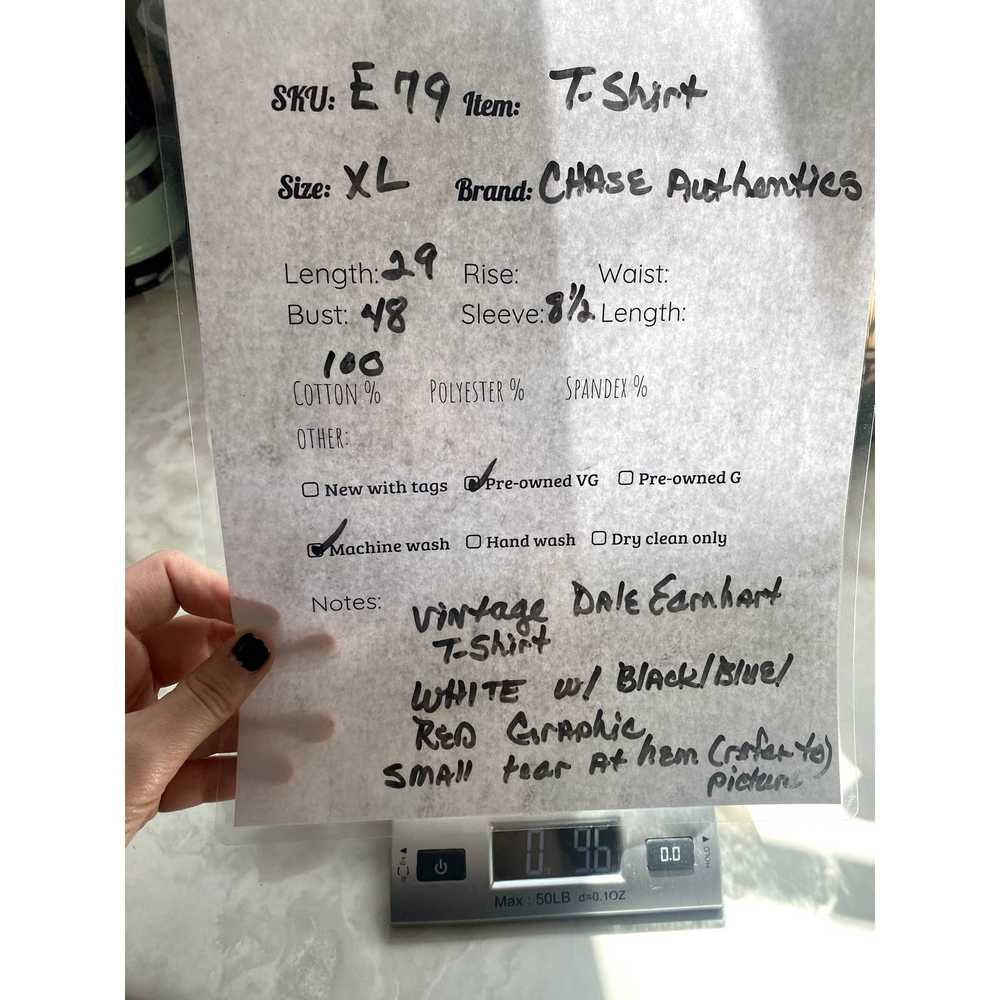 SKU: E 79 Item: T-Shirt
Size: XL Brand: CHASE Authentics
Length: 29 Rise: Waist:
Bust: 48 Sleeve: 8½ Length:
100
COTTON % POLYESTER % SPANDEX %
OTHER:
New with tags Pre-owned VG Pre-owned G
Machine wash Hand wash Dry clean only
Notes: Vintage Dale Earnhart
T-Shirt
WHITE w/ Black/Blue/
RED Graphic
SMAll tear At hem (refer to)
picture
0. 96 0.0
HOLD
Max : 50LB d=0.1OZ